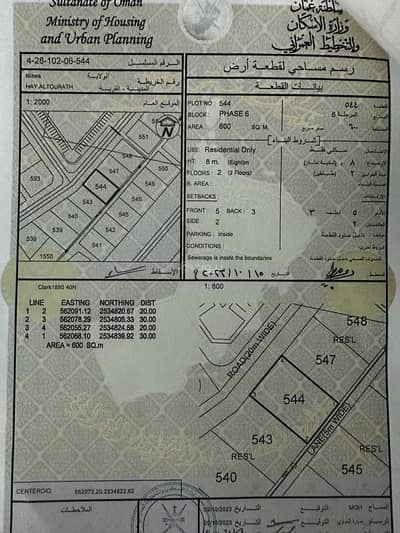 Sultanate of Oman
Ministry of Housing
and Urban Planning
سلطنة عمان
وزارة الإسكان
والتخطيط العمراني
4-28-102-06-544
الرقم المسلسل
رسم مساحي لقطعة أرض
Nizwa
الولاية
HAY ALTOURATH
المدينة - القرية
رقم الخريطة
بيانات القطعة
1: 2000
الموقع العام
PLOT NO : 544
٥٤٤
BLOCK : PHASE 6
المرحلة 6
AREA : 600 SQ. M.
٦٠٠
متر مربع
شروط البناء
USE: Residential Only
سكني فقط
HT : 8 m. (Eight)m
٨
FLOORS : 2 (2 Floors)
٢
B. AREA :
SETBACKS
FRONT : 5 BACK : 3
SIDE : 2
PARKING : Inside
CONDITIONS :
Sewerage is inside the boundaries
551
548
547
544
543
593
542
541
545
540
539
1550
الإسقاط
Clark1880 40N
1: 800
LINE EASTING NORTHING DIST
1 2 562091.12 2534820.67 20.00
2 3 562078.29 2534805.33 30.00
3 4 562055.27 2534824.58 20.00
4 1 562068.10 2534839.92 30.00
AREA = 600 SQ.m
548
RES'L
547
ROAD(20m WIDE)
544
543
RES'L
LANE(5m WIDE)
540
545
RES'L
CENTEROID 562073.20,2534822.62
الملاحظات
02/10/2023
التاريخ
التوقيع
المساح
02/10/2023
التاريخ
التوقيع